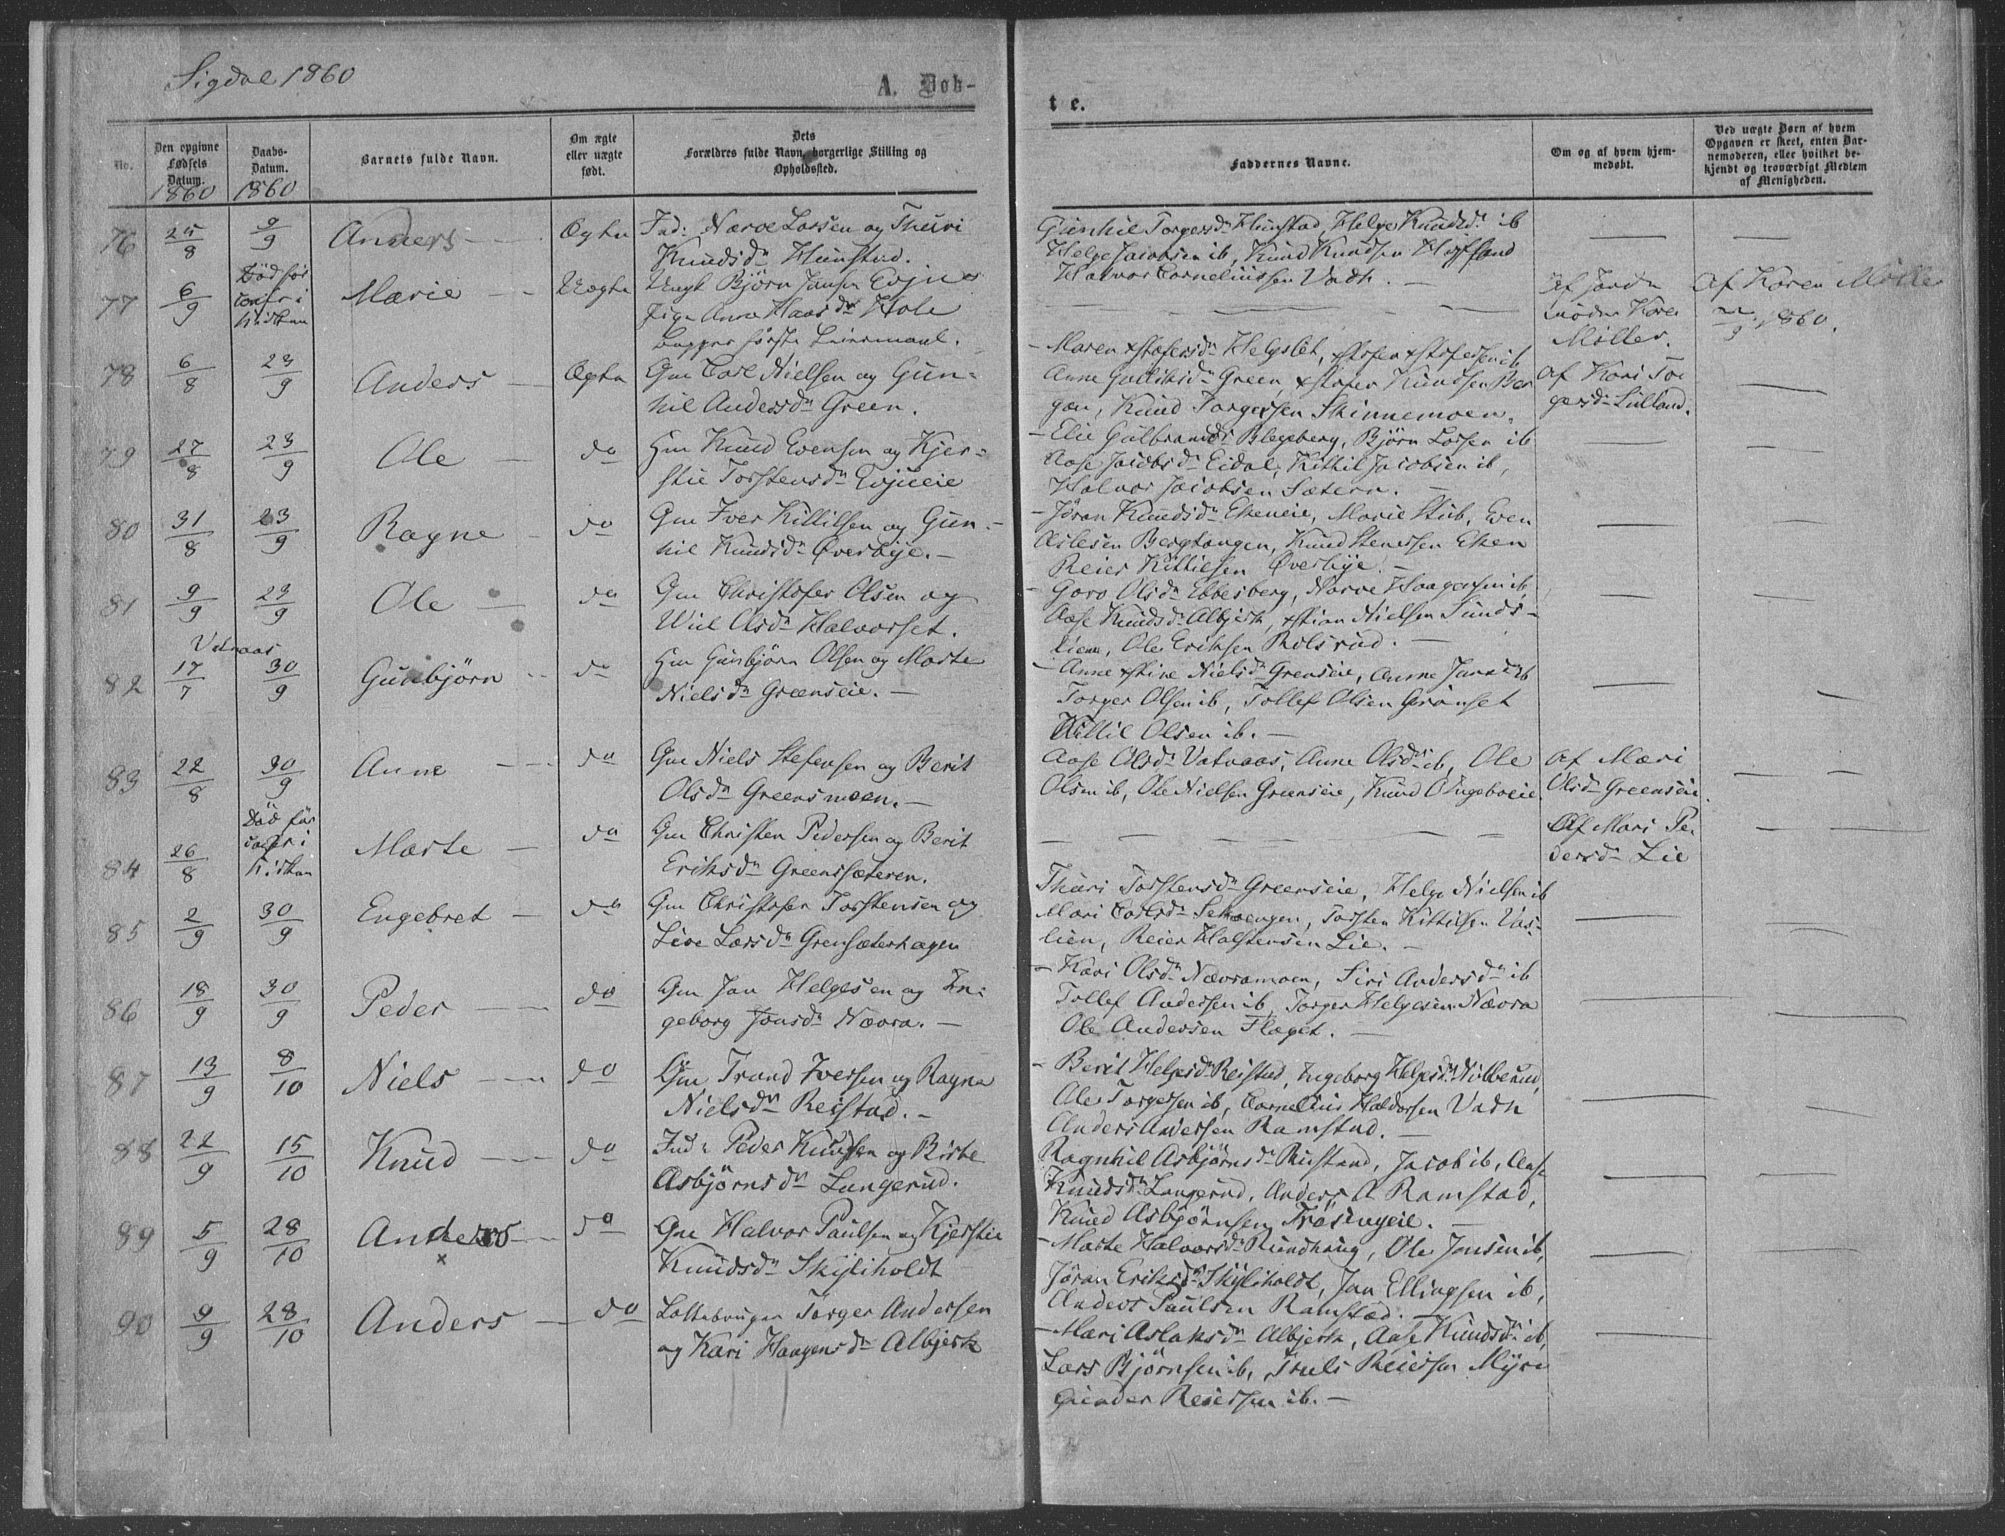 Sigdal 1860
A. Døb-
te.
No.
Den opgivne Fødsels Datum.
1860
Daabs-Datum.
1860
Barnets fulde Navn.
Om ægte eller uægte født.
Dets Forældres fulde Navn, borgerlige Stilling og Opholdssted.
Faddernes Navne.
Om og af hvem hjemmedøbt.
Ved uægte Børn af hvem Opgaven er skeet, enten Barnemoderen, eller hvilket bekjendt og troværdigt Medlem af Menigheden.
76 25/8 9/9 Anders Ægte Ind: Narve Larsen og Thuri
Knudsdn Hunstad.
Gunhil Torgersdn Hunstad, Helge Knudsdn ib
Helge Jacobsen ib, Knud Knudsen Hoffland
Halvor Corneliussen Vadh.
77 6/9 Død før Conf: i Kirken Marie Uægte Ungk Bjørn Jansen Evju
Pige Anne Haasdn Hole
Begges første Leiermaal.
Af Jordmoder Karen Møller.
Af Karen Møller
1860.
78 6/8 23/9 Anders Ægte Gm Carl Nielsen og Gun-
hil Andersdn Green.
Maren Xstofersdn Helgslet, Xstofer Xstofersen ib
Anne Gulliksdn Green, Xstofer Knudsen Ber
gan, Knud Torgersen Skinnemoen.
Af Kari Tor
gersdn Lulland.
79 27/8 23/9 Ole do Hm Knud Evensen og Kjer-
stie Torstensdn Evjueie
Elie Gulbrandsdn Blegeberg, Bjørn Larsen ib
Aase Jacobsdn Eidal, Kittil Jacobsen ib,
Halvor Jacobsen Sætern.
80 31/8 23/9 Ragne do Gm Iver Kittilsen og Gun-
hil Knudsdn Øverbye.
Jøran Knudsdn Ekeneie, Marie Stub, Even
Aslesen Bergtangen, Knud Stenersen Eken
Reier Kittilsen Øverbye.
81 9/9 23/9 Ole do Gm Christofer Olsen og
Wiel Olsdn Halvorset.
Goro Olsdn Ebbesberg, Narve Haagensen ib,
Aase Knudsdn Albjerk, Xstian Nielsen Sunds-
lien, Ole Eriksen Rolsrud.
Vatnaas
82 17/7 30/9 Gunbjørn do Hm Gunbjørn Olsen og Marte
Nielsdn Greenseie.
Anne Xstine Nielsdn Greenseie, Anne Jansdn ib
Torger Olsen ib, Tollef Olsen Grønset
Kittil Olsen ib.
83 22/8 30/9 Anne do Gm Niels Stefensen og Berit
Olsdn Greensmoen.
Aase Olsdn Vatnaas, Anne Olsdn ib, Ole
Olsen ib, Ole Nielsen Greenseie, Knud O Ingeboeie.
Af Mari
Olsdn Greenseie.
84 26/8 Død før Conf: i Kirken Marte do Gm Christen Pedersen og Berit
Eriksdn Greenssæteren.
Af Mari Pe-
dersdn Lie
85 2/9 30/9 Engebret do Gm Christofer Torstensen og
Live Larsdn Grensæterhagen
Thuri Torstensdn Greenseie, Helge Nielsen ib
Mari Carlsdn Torsten Kittilsen Vas-
lien, Reier Halstensen Lie.
86 18/9 30/9 Peder do Gm Jan Helgesen og In-
geborg Jonsdn Nævra.
Kari Olsdn Nævramoen, Siri Andersdn ib
Tollef Andersen ib, Torger Helgesen Nævra
Ole Andersen Flaget.
87 13/9 8/10 Niels do Gm Trond Iversen og Ragne
Nielsdn Reistad.
Berit Helgesdn Reistad, Ingeborg Helgesdn Nubberud,
Ole Torgersen ib, Cornelius Haldorsen Vadh
Anders Andersen Ramstad.
88 22/9 15/10 Knud do Ind: Peder Knudsen og Birte
Asbjørnsdn Langerud.
Ragnhil Asbjørnsdn Rustand, Jacob ib, Aase
Knudsdn Langerud, Anders A Ramstad,
Knud Asbjørnsen Frøsengeie.
89 5/9 28/10 Anders × do Gm Halvor Paulsen og Kjerstie
Knudsdn Skjliholdt
Marte Halvorsdn Rundhaug, Ole Jonsen ib,
Jøran Eriksdn Skyliholdt, Jan Ellingsen ib,
Anders Paulsen Ramstad.
90 9/9 28/10 Anders do Lottebruger Torger Andersen
og Kari Haagensdn Albjerk
Mari Aslaksdn Albjerk, Aase Knudsdn ib,
Lars Bjørnsen ib, Truls Reiersen Myre
Gunder Reiersen ib.